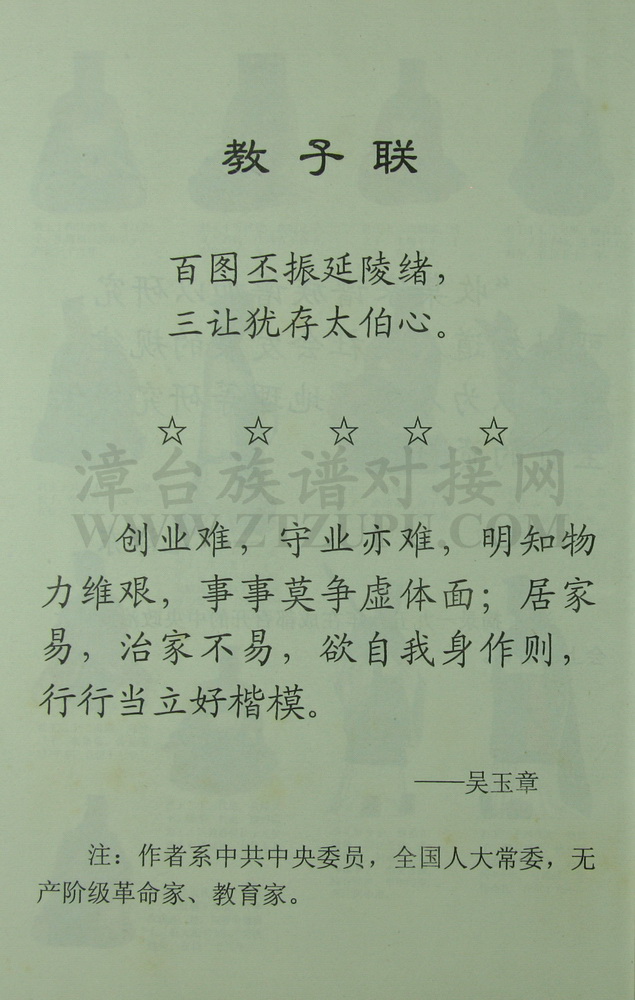 教子联
百图丕振延陵绪，
三让犹存太伯心。
☆ ☆ ☆ ☆ ☆
漳台族谱对接网
WWW.ZTZUPU.COM
创业难，守业亦难，明知物
力维艰，事事莫争虚体面；居家
易，治家不易，欲自我身作则，
行行当立好楷模。
——吴玉章
注：作者系中共中央委员，全国人大常委，无
产阶级革命家、教育家。